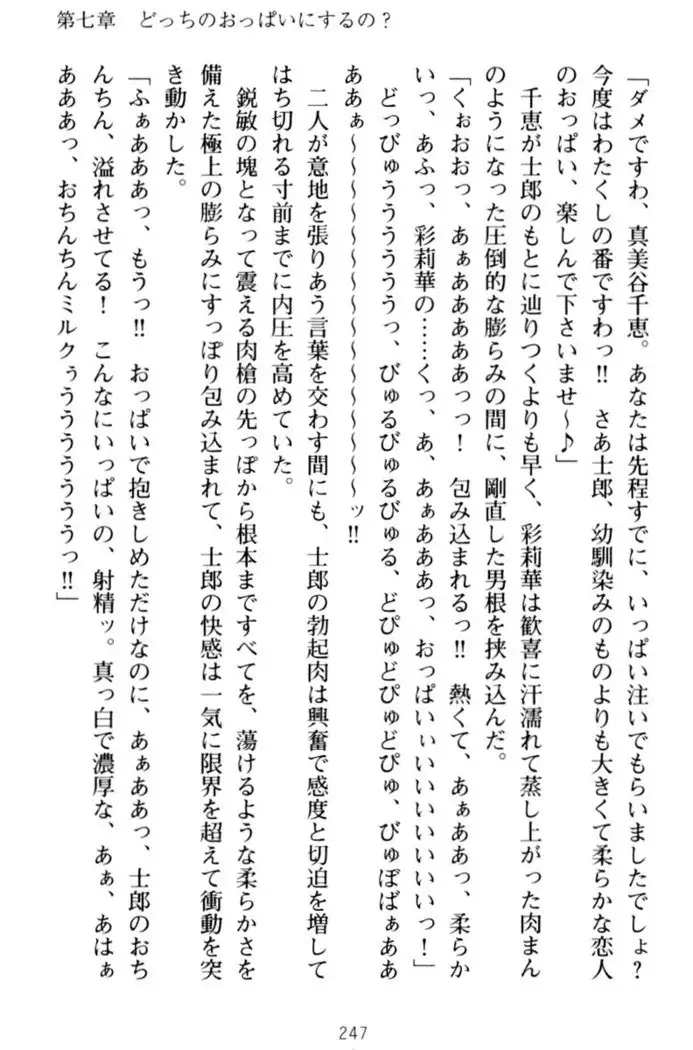 第七章　どっちのおっぱいにするの？
「ダメですわ、真美谷千恵。あなたは先程すでに、いっぱい注いでもらいましたでしょ？
今度はわたくしの番ですわっ!!　さあ士郎、幼馴染みのものよりも大きくて柔らかな恋人
のおっぱい、楽しんで下さいませ～♪」
千恵が士郎のもとに辿りつくよりも早く、彩莉華は歓喜に汗濡れて蒸し上がった肉まん
のようになった圧倒的な膨らみの間に、剛直した男根を挟み込んだ。
「くぉおおっ、あぁああああああっっ！　包み込まれるっ!!　熱くて、あぁああっ、柔らか
いっ、あふっ、彩莉華の……くっ、あ、あぁああああっ、おっぱいぃぃいいいいいいいっ！」
どっびゅうううううううっ、びゅるびゅるびゅる、どぴゅどぴゅどぴゅ、びゅぼばぁああ
ああぁ～～～～～～～～～～～～～～ッ!!
二人が意地を張りあう言葉を交わす間にも、士郎の勃起肉は興奮で感度と切迫を増して
はち切れる寸前までに内圧を高めていた。
鋭敏の塊となって震える肉槍の先っぽから根本まですべてを、蕩けるような柔らかさを
備えた極上の膨らみにすっぽり包み込まれて、士郎の快感は一気に限界を超えて衝動を突
き動かした。
「ふぁあああっ、もうっ!!　おっぱいで抱きしめただけなのに、あぁああっ、士郎のおち
んちん、溢れさせてる！　こんなにいっぱいの、射精ッ。真っ白で濃厚な、あぁ、あはぁ
ああああっ、おちんちんミルクぅううううううううっ!!」
247